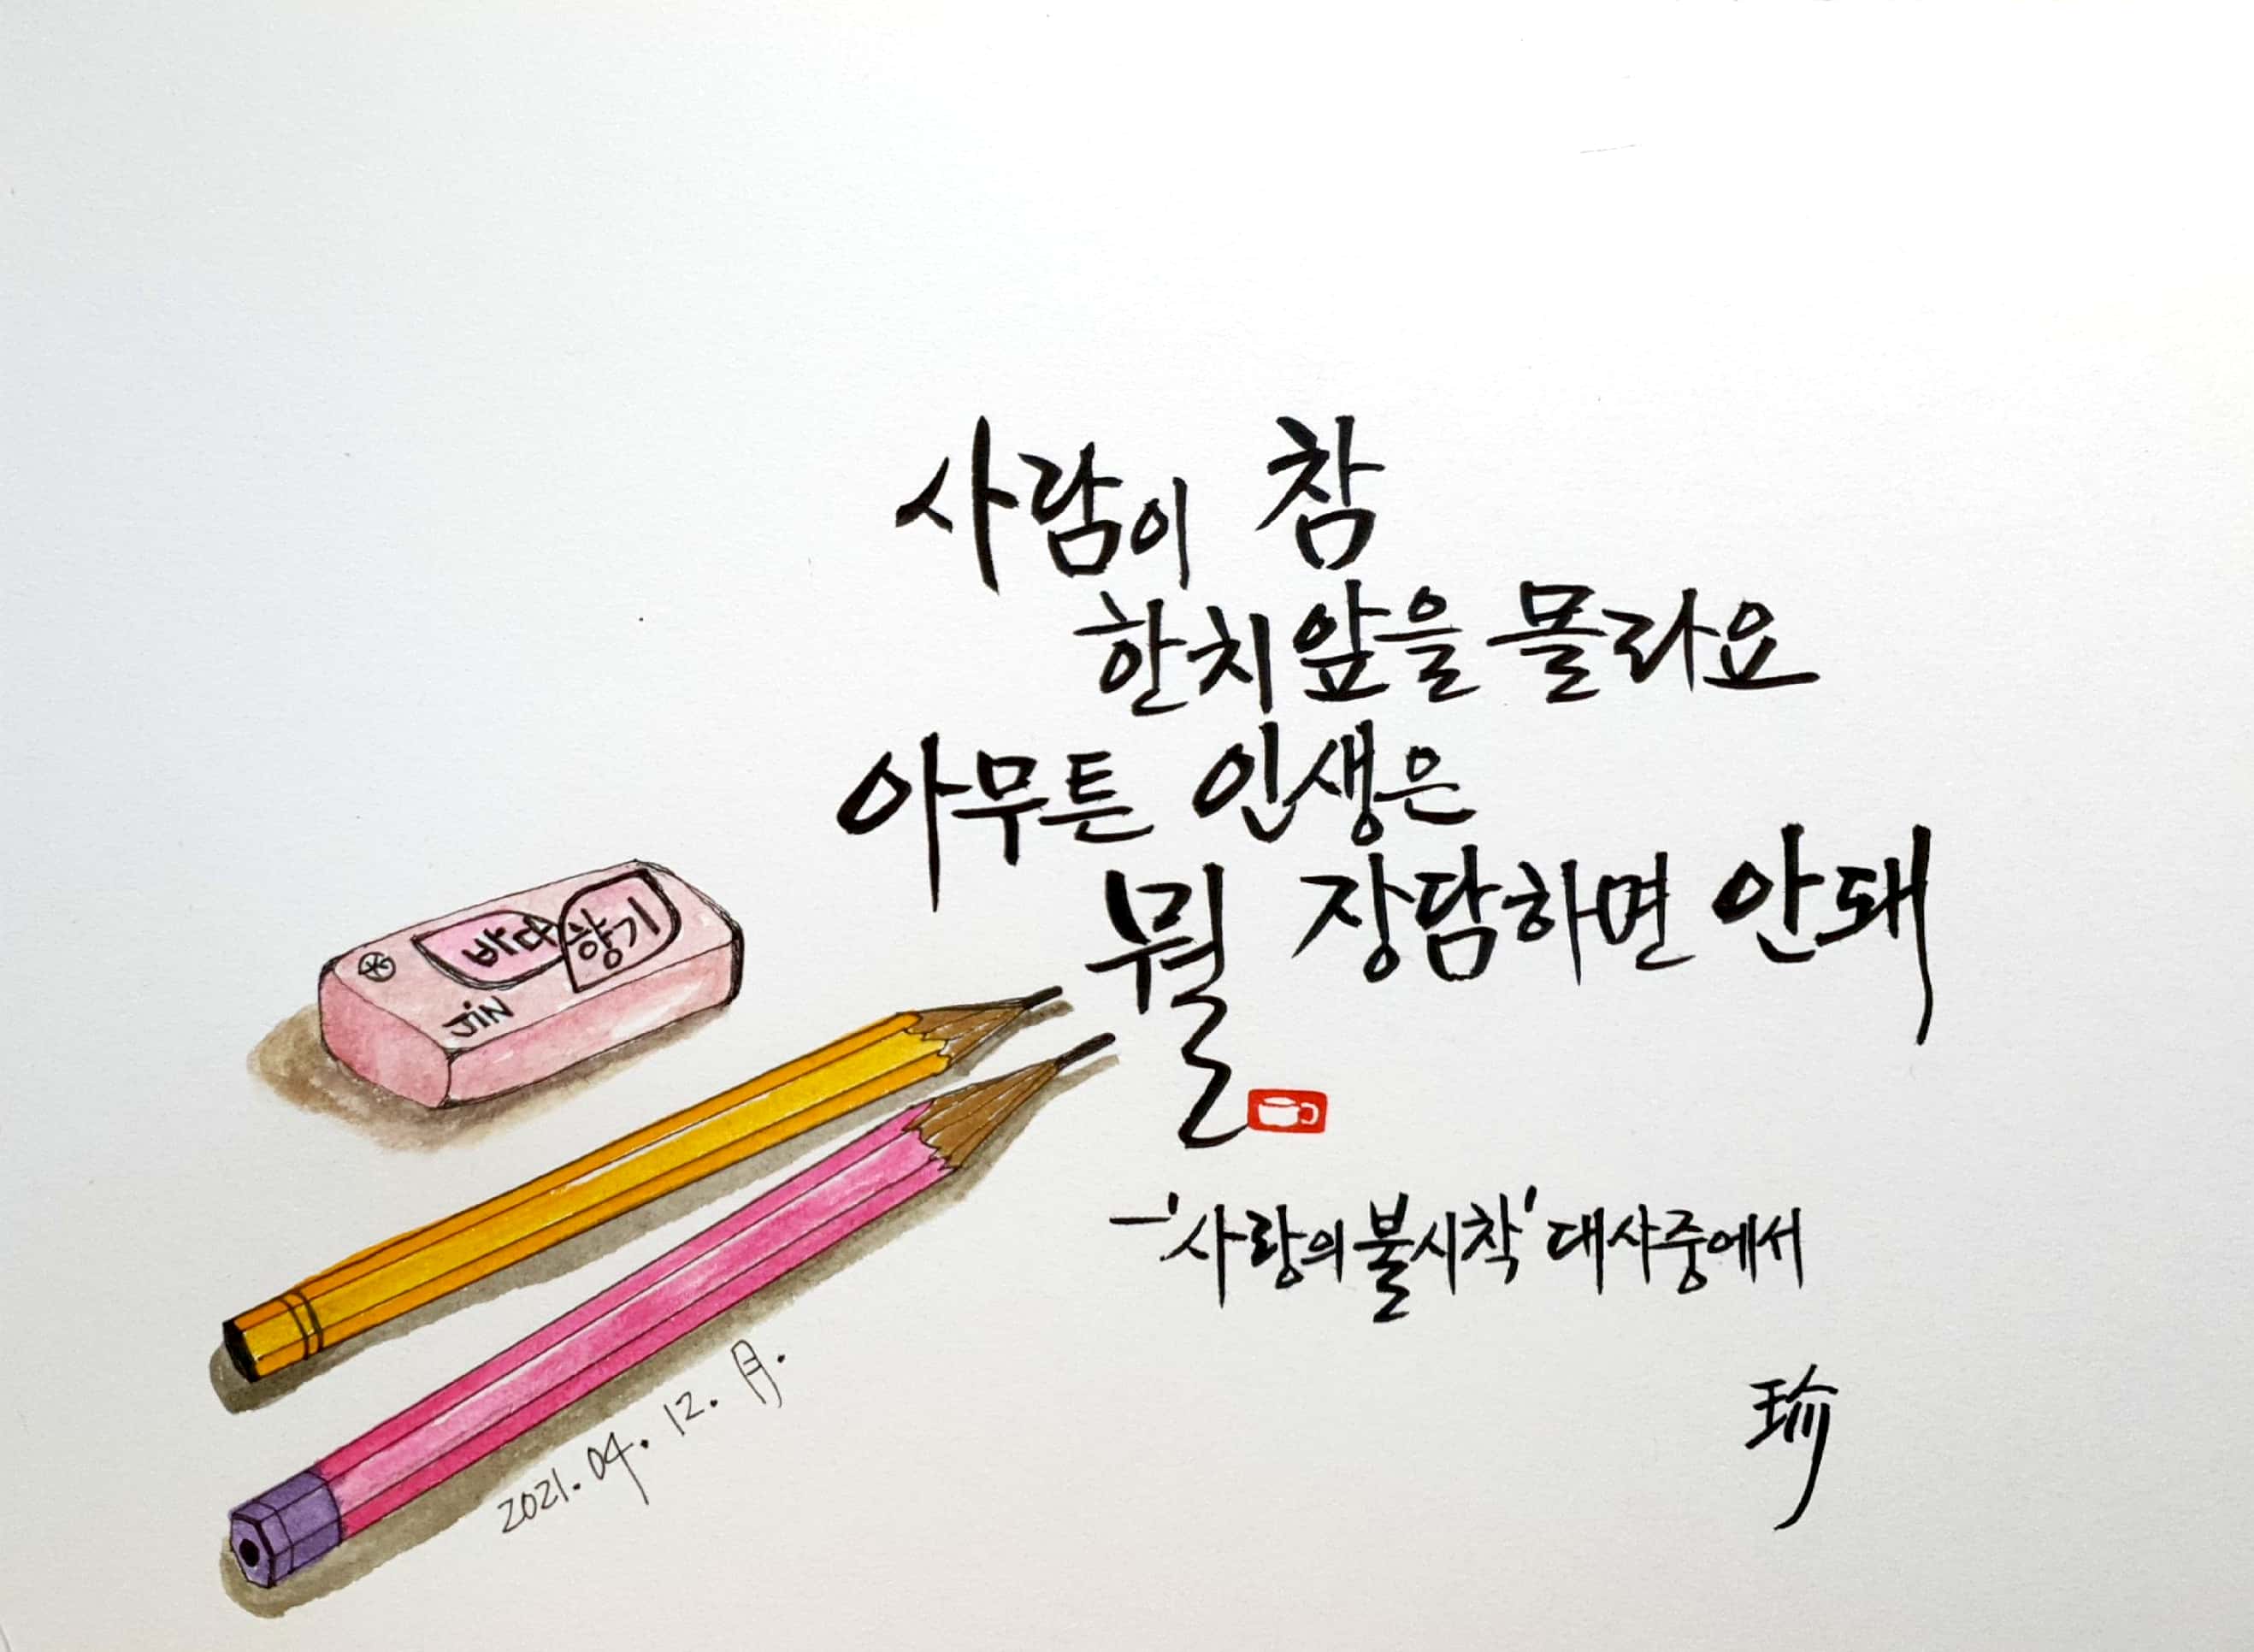 사람이 참
한치앞을 몰라요
아무튼 인생은
뭘 장담하면 안돼
-'사랑의 불시착' 대사중에서
바다
향기
jiN
2021. 04. 12. 月.